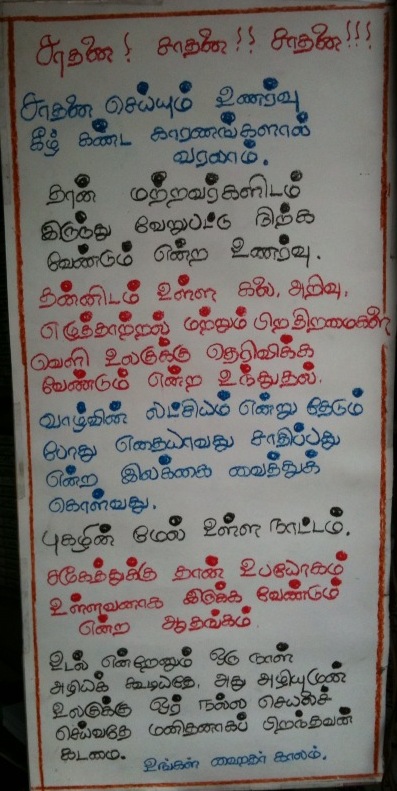 சாதனை! சாதனை!! சாதனை!!!
சாதனை செய்யும் உணர்வு
கீழ் கண்ட காரணங்களால்
வரலாம்.
தான் மற்றவர்களிடம்
இருந்து வேறுபட்டு நிற்க
வேண்டும் என்ற உணர்வு.
தன்னிடம் உள்ள கலை, அறிவு,
எழுத்தாற்றல் மற்றும் பிறதிறமைகளை
வெளி உலகுக்கு தெரிவிக்க
வேண்டும் என்ற உந்துதல்.
வாழ்வின் லட்சியம் என்று தேடும்
போது எதையாவது சாதிப்பது
என்ற இலக்கை வைத்துக்
கொள்வது.
புகழின் மேல் உள்ள நாட்டம்.
சமூகத்துக்கு தான் உபயோகம்
உள்ளவனாக இருக்க வேண்டும்
என்ற ஆதங்கம்.
உடல் என்றேனும் ஒரு நாள்
அழியக் கூடியதே, அது அழியுமுன்
உலகுக்கு ஓர் நல்ல செயலைச்
செய்வதே மனிதனாகப் பிறந்தவன்
கடமை.
உங்கள் காலம்.